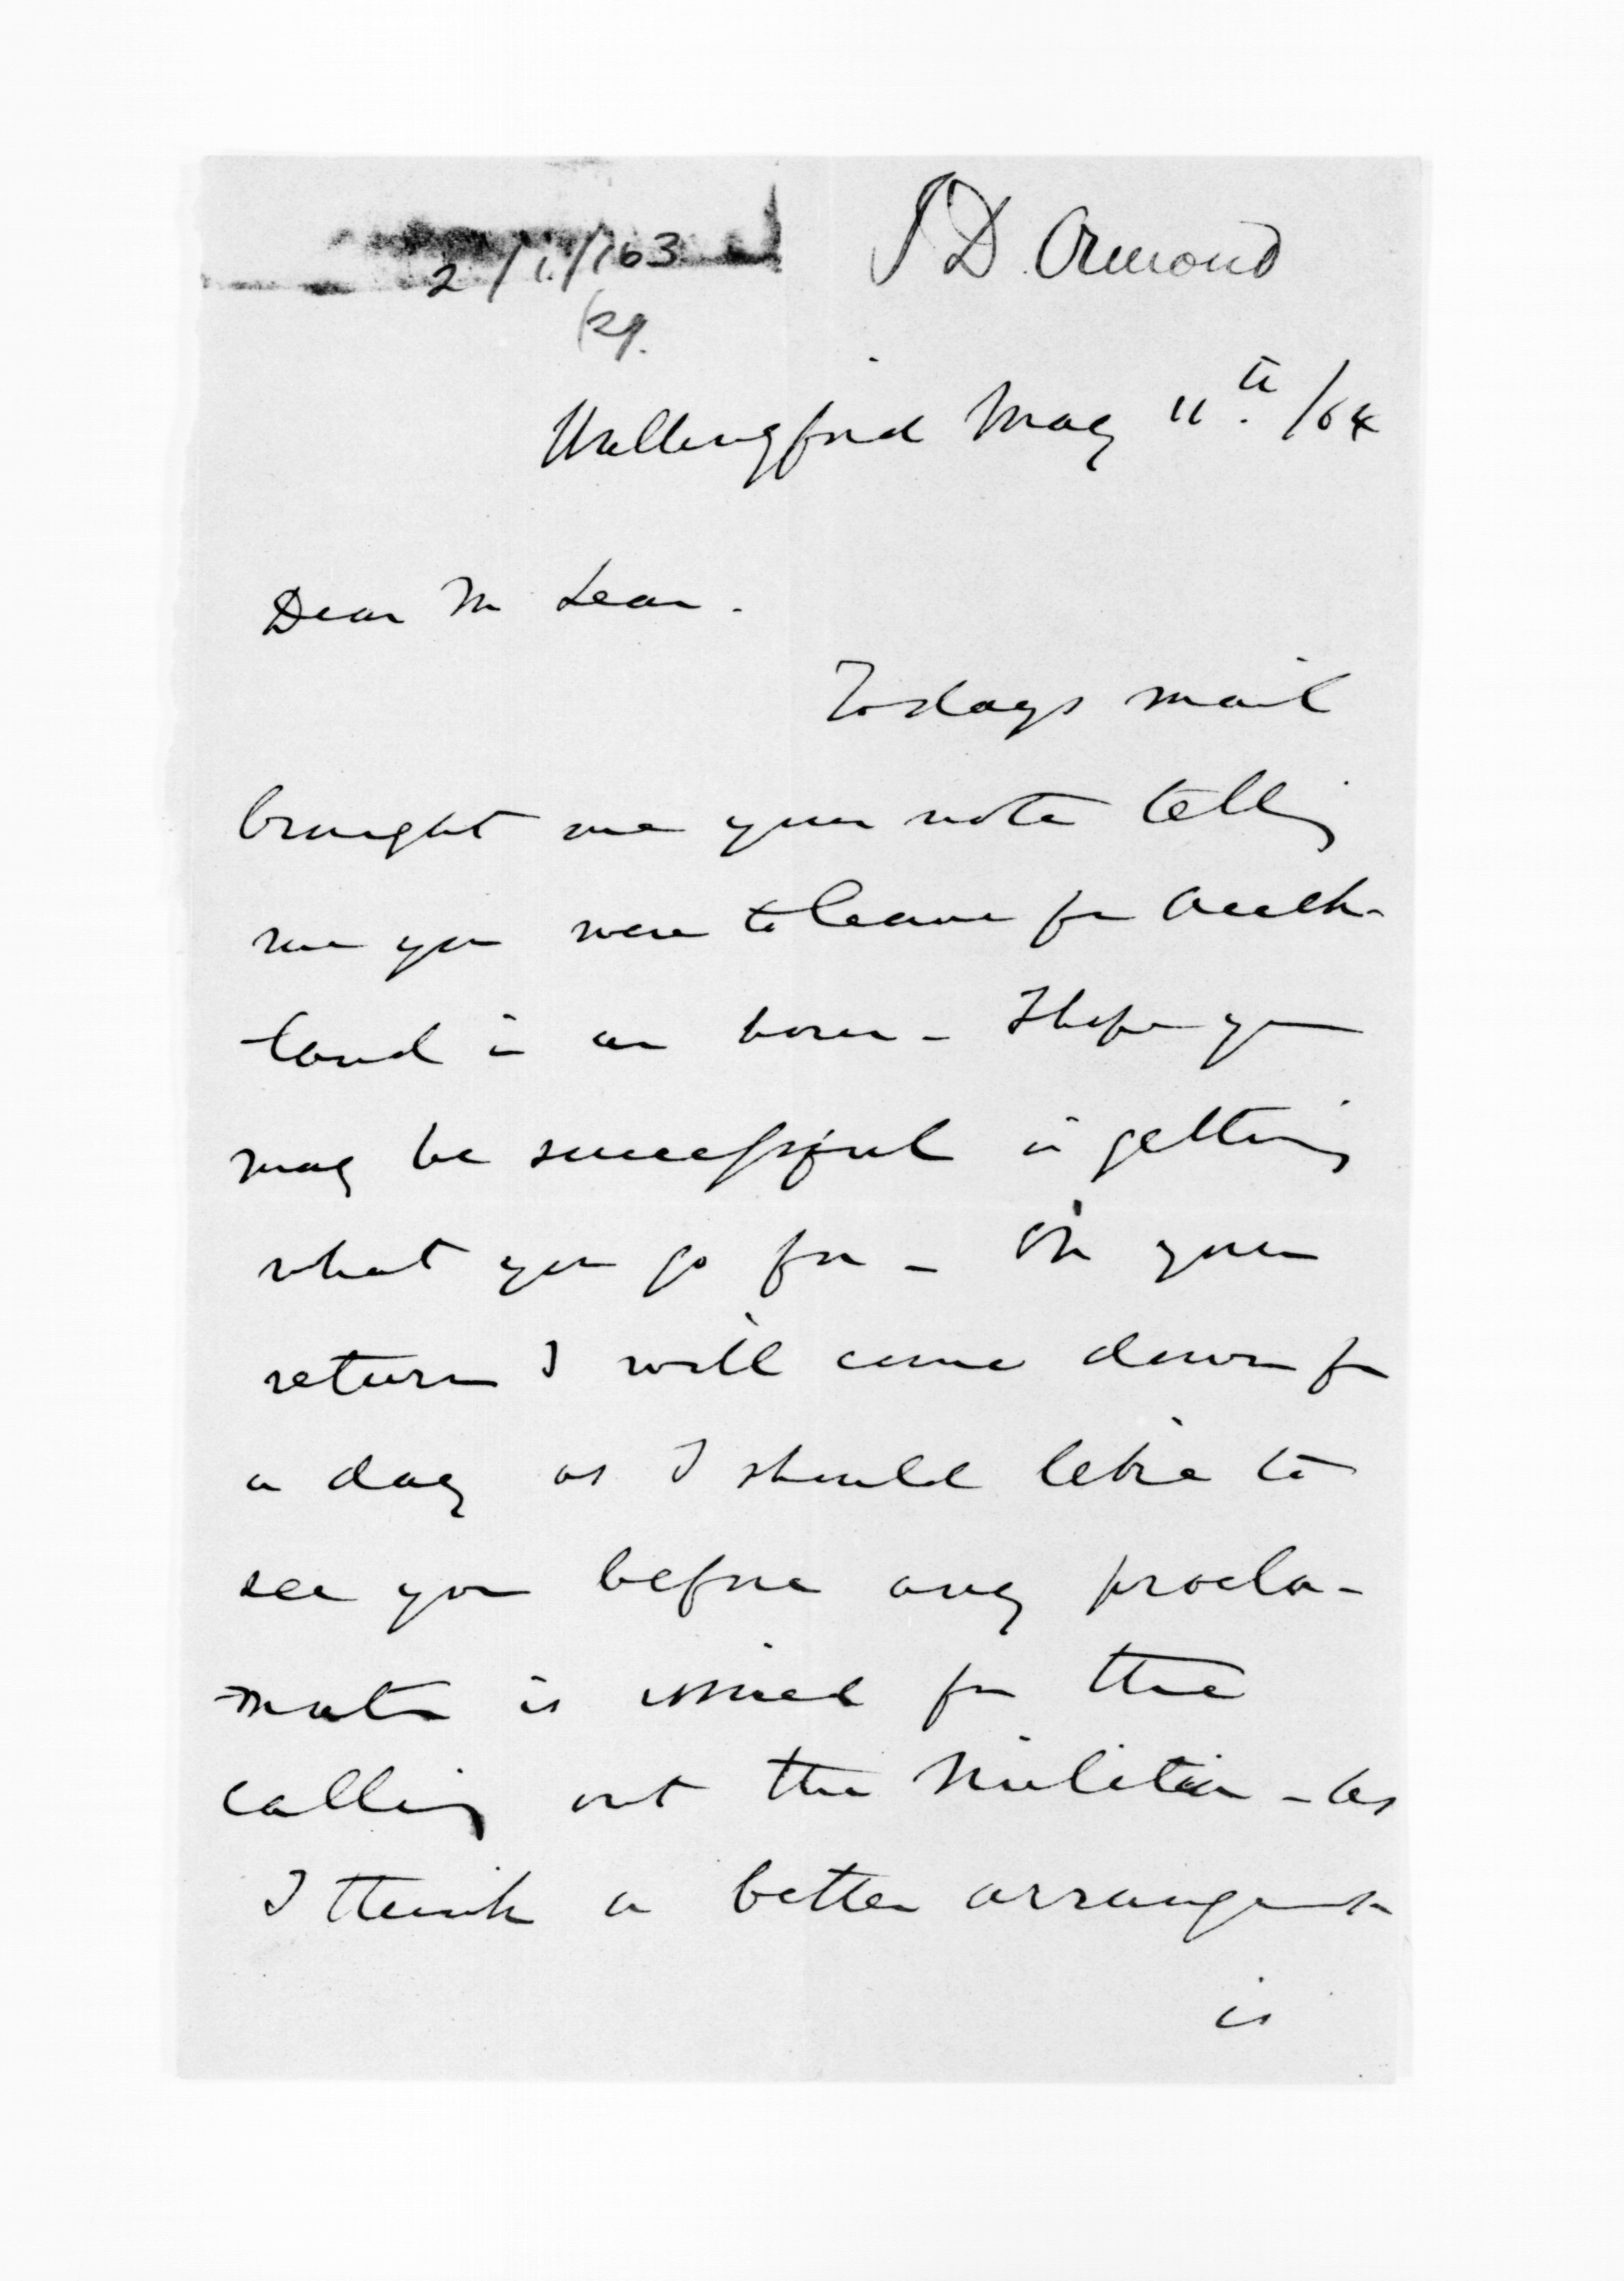 J D. Ormond
2/1/163
Wallingford May 11th./64
Dear Mc Lean.
Todays mail
brought me your note telling
me you were to leave for Auck-
land in an hour - I hope you
may be successful in getting
what you go for - On your
return I will come down for
a day as I should like to
see you before any procla-
matn is issued for the
calling out the Militia - as
I think a better arrangemt
is